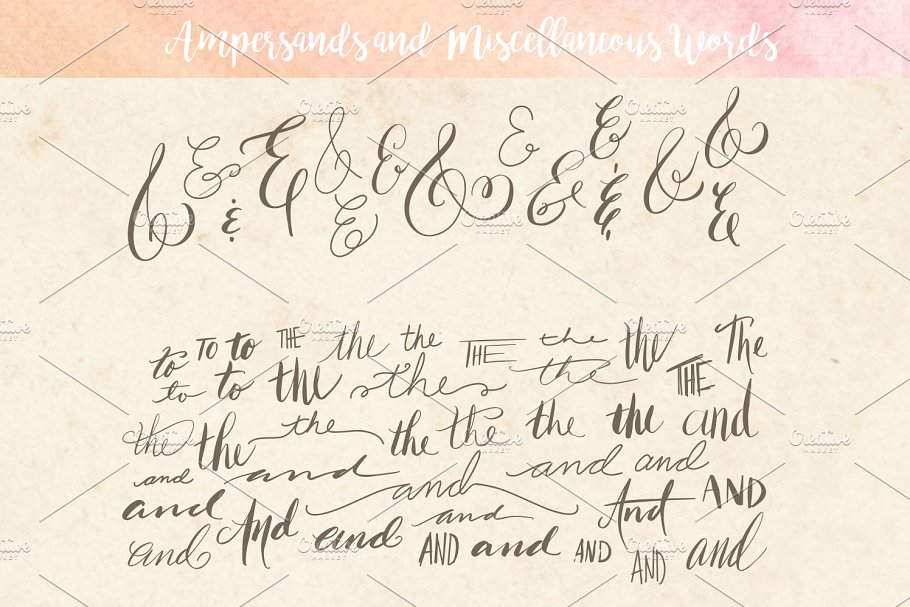 Ampersands and Miscellaneous Words
& & & & & & & & & & & & & & & &
to TO to THE the the THE the the THE The
to to the s'thes the
the the the the the the the and
and and and and and
and And and and AND and AND And AND
and AND and
Creative Market